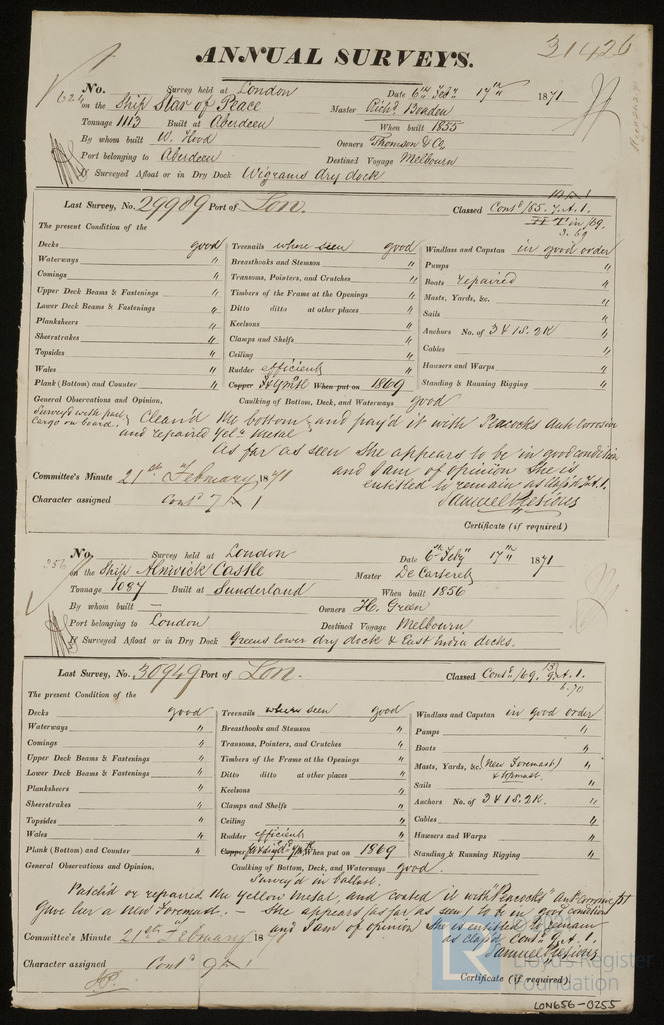 31426
ANNUAL SURVEYS.
No. 624 Survey held at London Date 6th Feby 17th 1871
on the Ship Star of Peace Master Richd. Boaden
Tonnage 1113 Built at Aberdeen When built 1855
By whom built W. Hood Owners Thomson & Co,
Port belonging to Aberdeen Destined Voyage Melbourn
If Surveyed Afloat or in Dry Dock Wigrams dry dock
Last Survey, No. 29989 Port of Lon. Classed Contd /65. 7. A. 1.
in /69.
3. 69
The present Condition of the
Decks good Treenails where seen good Windlass and Capstan in good order
Waterways " Breasthooks and Stemson " Pumps "
Comings " Transoms, Pointers, and Crutches " Boats repaired "
Upper Deck Beams & Fastenings " Timbers of the Frame at the Openings " Masts, Yards, &c. "
Lower Deck Beams & Fastenings " Ditto ditto at other places " Sails "
Planksheers " Keelsons " Anchors No. of 3 & 1S. 2K "
Sheerstrakes " Clamps and Shelfs " Cables "
Topsides " Ceiling " Hawsers and Warps "
Wales " Rudder efficient Standing & Running Rigging "
Plank (Bottom) and Counter " Copper When put on 1869
General Observations and Opinion, Caulking of Bottom, Deck, and Waterways good
Surveys with part Cargo on board. Clean'd the bottom and pay'd it with Peacocks Anti Corrosive
and repaired Yelw Metal
As far as seen She appears to be in good condition
and I am of opinion She is
entitled to remain as Class'd 7. A. 1.
Committee's Minute 21st February 1871
Samuel Pretious
Character assigned Contd 7 A 1
Certificate (if required)
No. 356 Survey held at London Date 6th Feby 17th 1871
on the Ship Alnwick Castle Master De Carteret
Tonnage 1087 Built at Sunderland When built 1856
By whom built — Owners H. Green
Port belonging to London Destined Voyage Melbourn
If Surveyed Afloat or in Dry Dock Greens lower dry dock & East India docks.
Last Survey, No. 30949 Port of Lon. Classed Contd /69. 9. A. 1.
6.70
The present Condition of the
Decks good Treenails where seen good Windlass and Capstan in good order
Waterways " Breasthooks and Stemson " Pumps "
Comings " Transoms, Pointers, and Crutches " Boats "
Upper Deck Beams & Fastenings " Timbers of the Frame at the Openings " Masts, Yards, &c. (New Foremast) & topmast. "
Lower Deck Beams & Fastenings " Ditto ditto at other places " Sails "
Planksheers " Keelsons " Anchors No. of 3 & 1S. 2K. "
Sheerstrakes " Clamps and Shelfs " Cables "
Topsides " Ceiling " Hawsers and Warps "
Wales " Rudder efficient Standing & Running Rigging "
Plank (Bottom) and Counter " Copper When put on 1869
General Observations and Opinion, Caulking of Bottom, Deck, and Waterways good.
Survey'd in ballast.
Patch'd or repaired the Yellow Metal, and coated it with "Peacocks" Anti Corrosive ppt
Gave her a new Foremast. — She appears (as far as seen) to be in good condition
and I am of opinion She is entitled to remain
as class'd Contd 9. A. 1.
Committee's Minute 21st February 1871
Samuel Pretious
Character assigned Contd 9 A 1
Certificate (if required).
LR
© 2021
Lloyd's Register
Foundation
LON656-0255